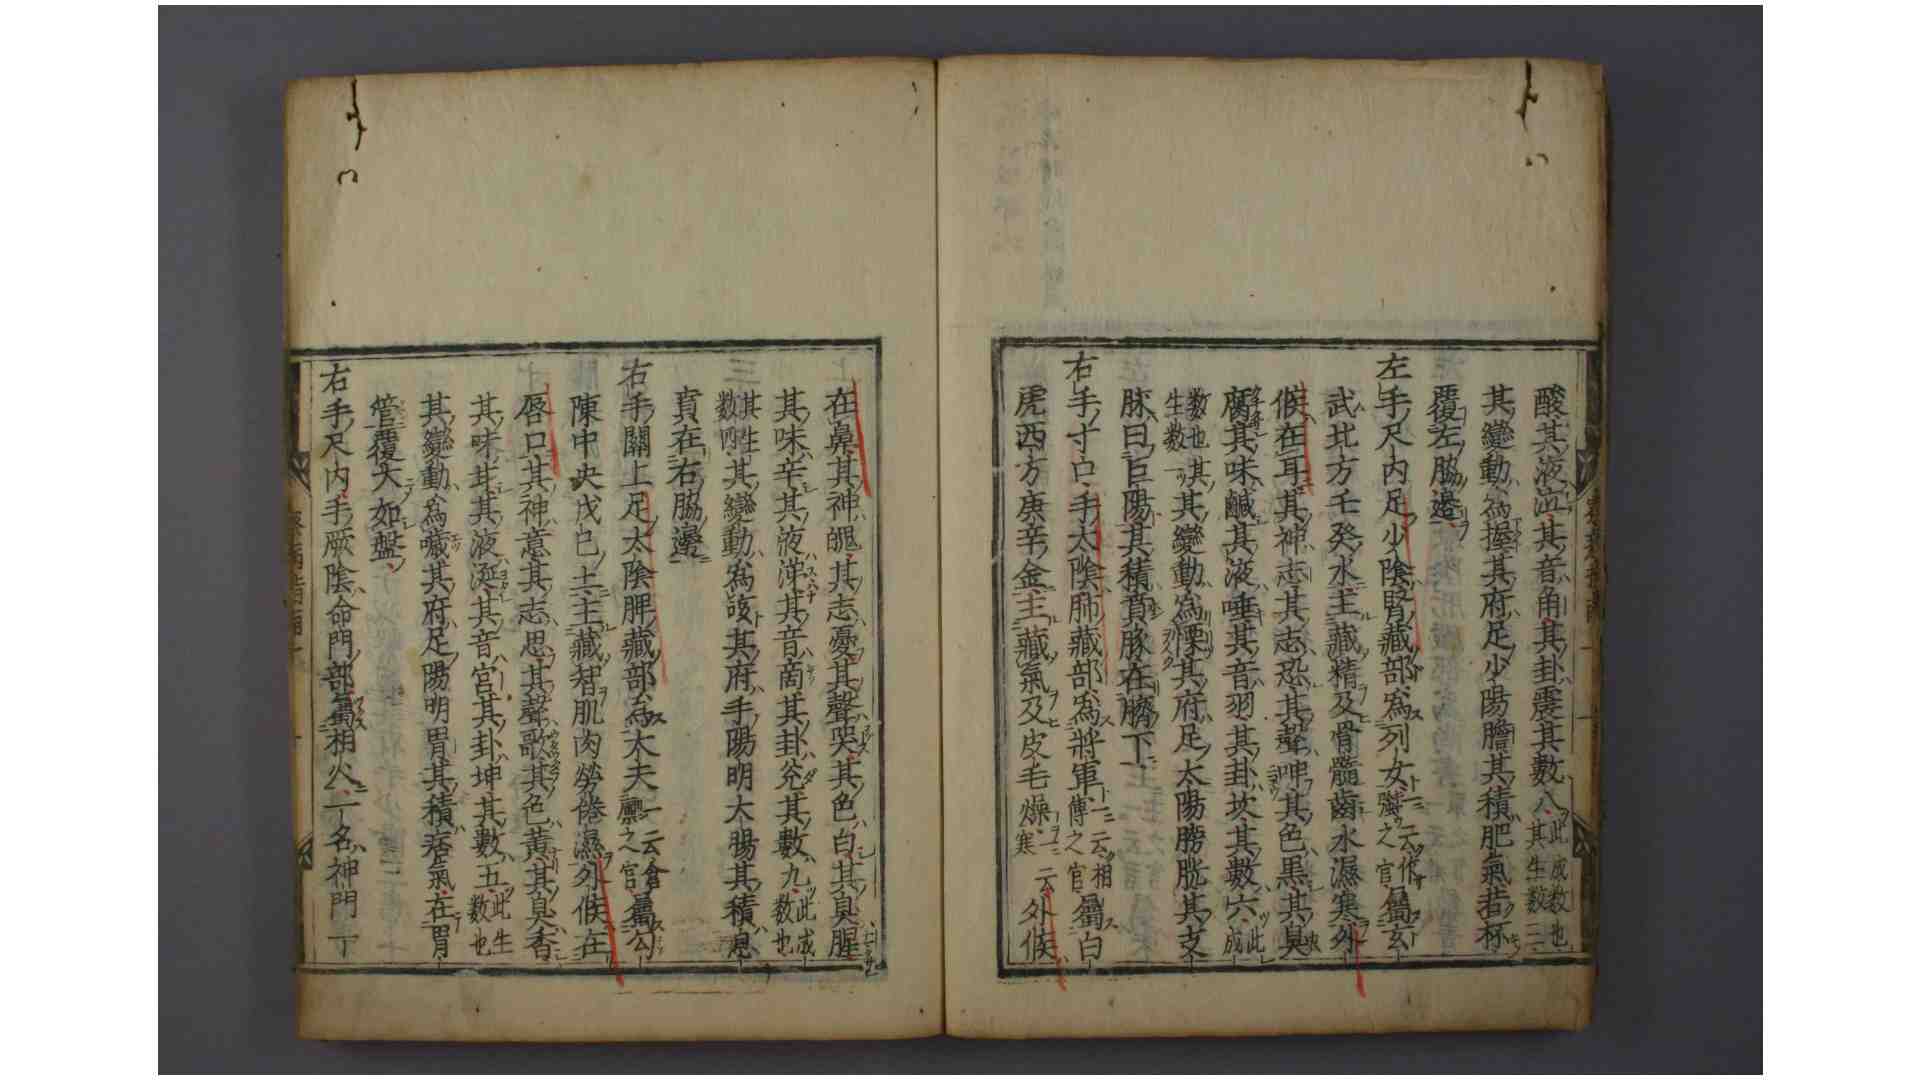 酸其液泣其音角其卦震其數八此成数也其生数三
其變動為握其府足少陽膽其積肥氣若杯
覆左脇邊
左手尺内足少陰腎藏部為列女一云作強之官屬玄
武北方壬癸水主藏精及骨髓齒水濕寒外
候在耳其神志其志恐其聲呻其色黒其臭
腐其味鹹其液唾其音羽其卦坎其數六此成
数也其生数一其變動為慄其府足太陽膀胱其支
脉曰巨陽其積賁豚在臍下
右手寸口手太陰肺藏部為將軍一云相傳之官屬白
虎西方庚辛金主藏氣及皮毛燥一云寒外候
在鼻其神魄其志憂其聲哭其色白其臭腥
其味辛其液涕其音商其卦兊其數九此成数也
其生数四其變動為咳其府手陽明大腸其積息
賁在右脇邊
右手關上足太陰脾藏部為大夫一云倉廪之官屬勾
陳中央戊己土主藏智肌肉勞倦濕外候在
唇口其神意其志思其聲歌其色黄其臭香
其味甘其液涎其音宮其卦坤其數五此生数也
其變動為噦其府足陽明胃其積痞氣在胃
管覆大如盤
右手尺内手厥陰命門部屬相火一名神門一